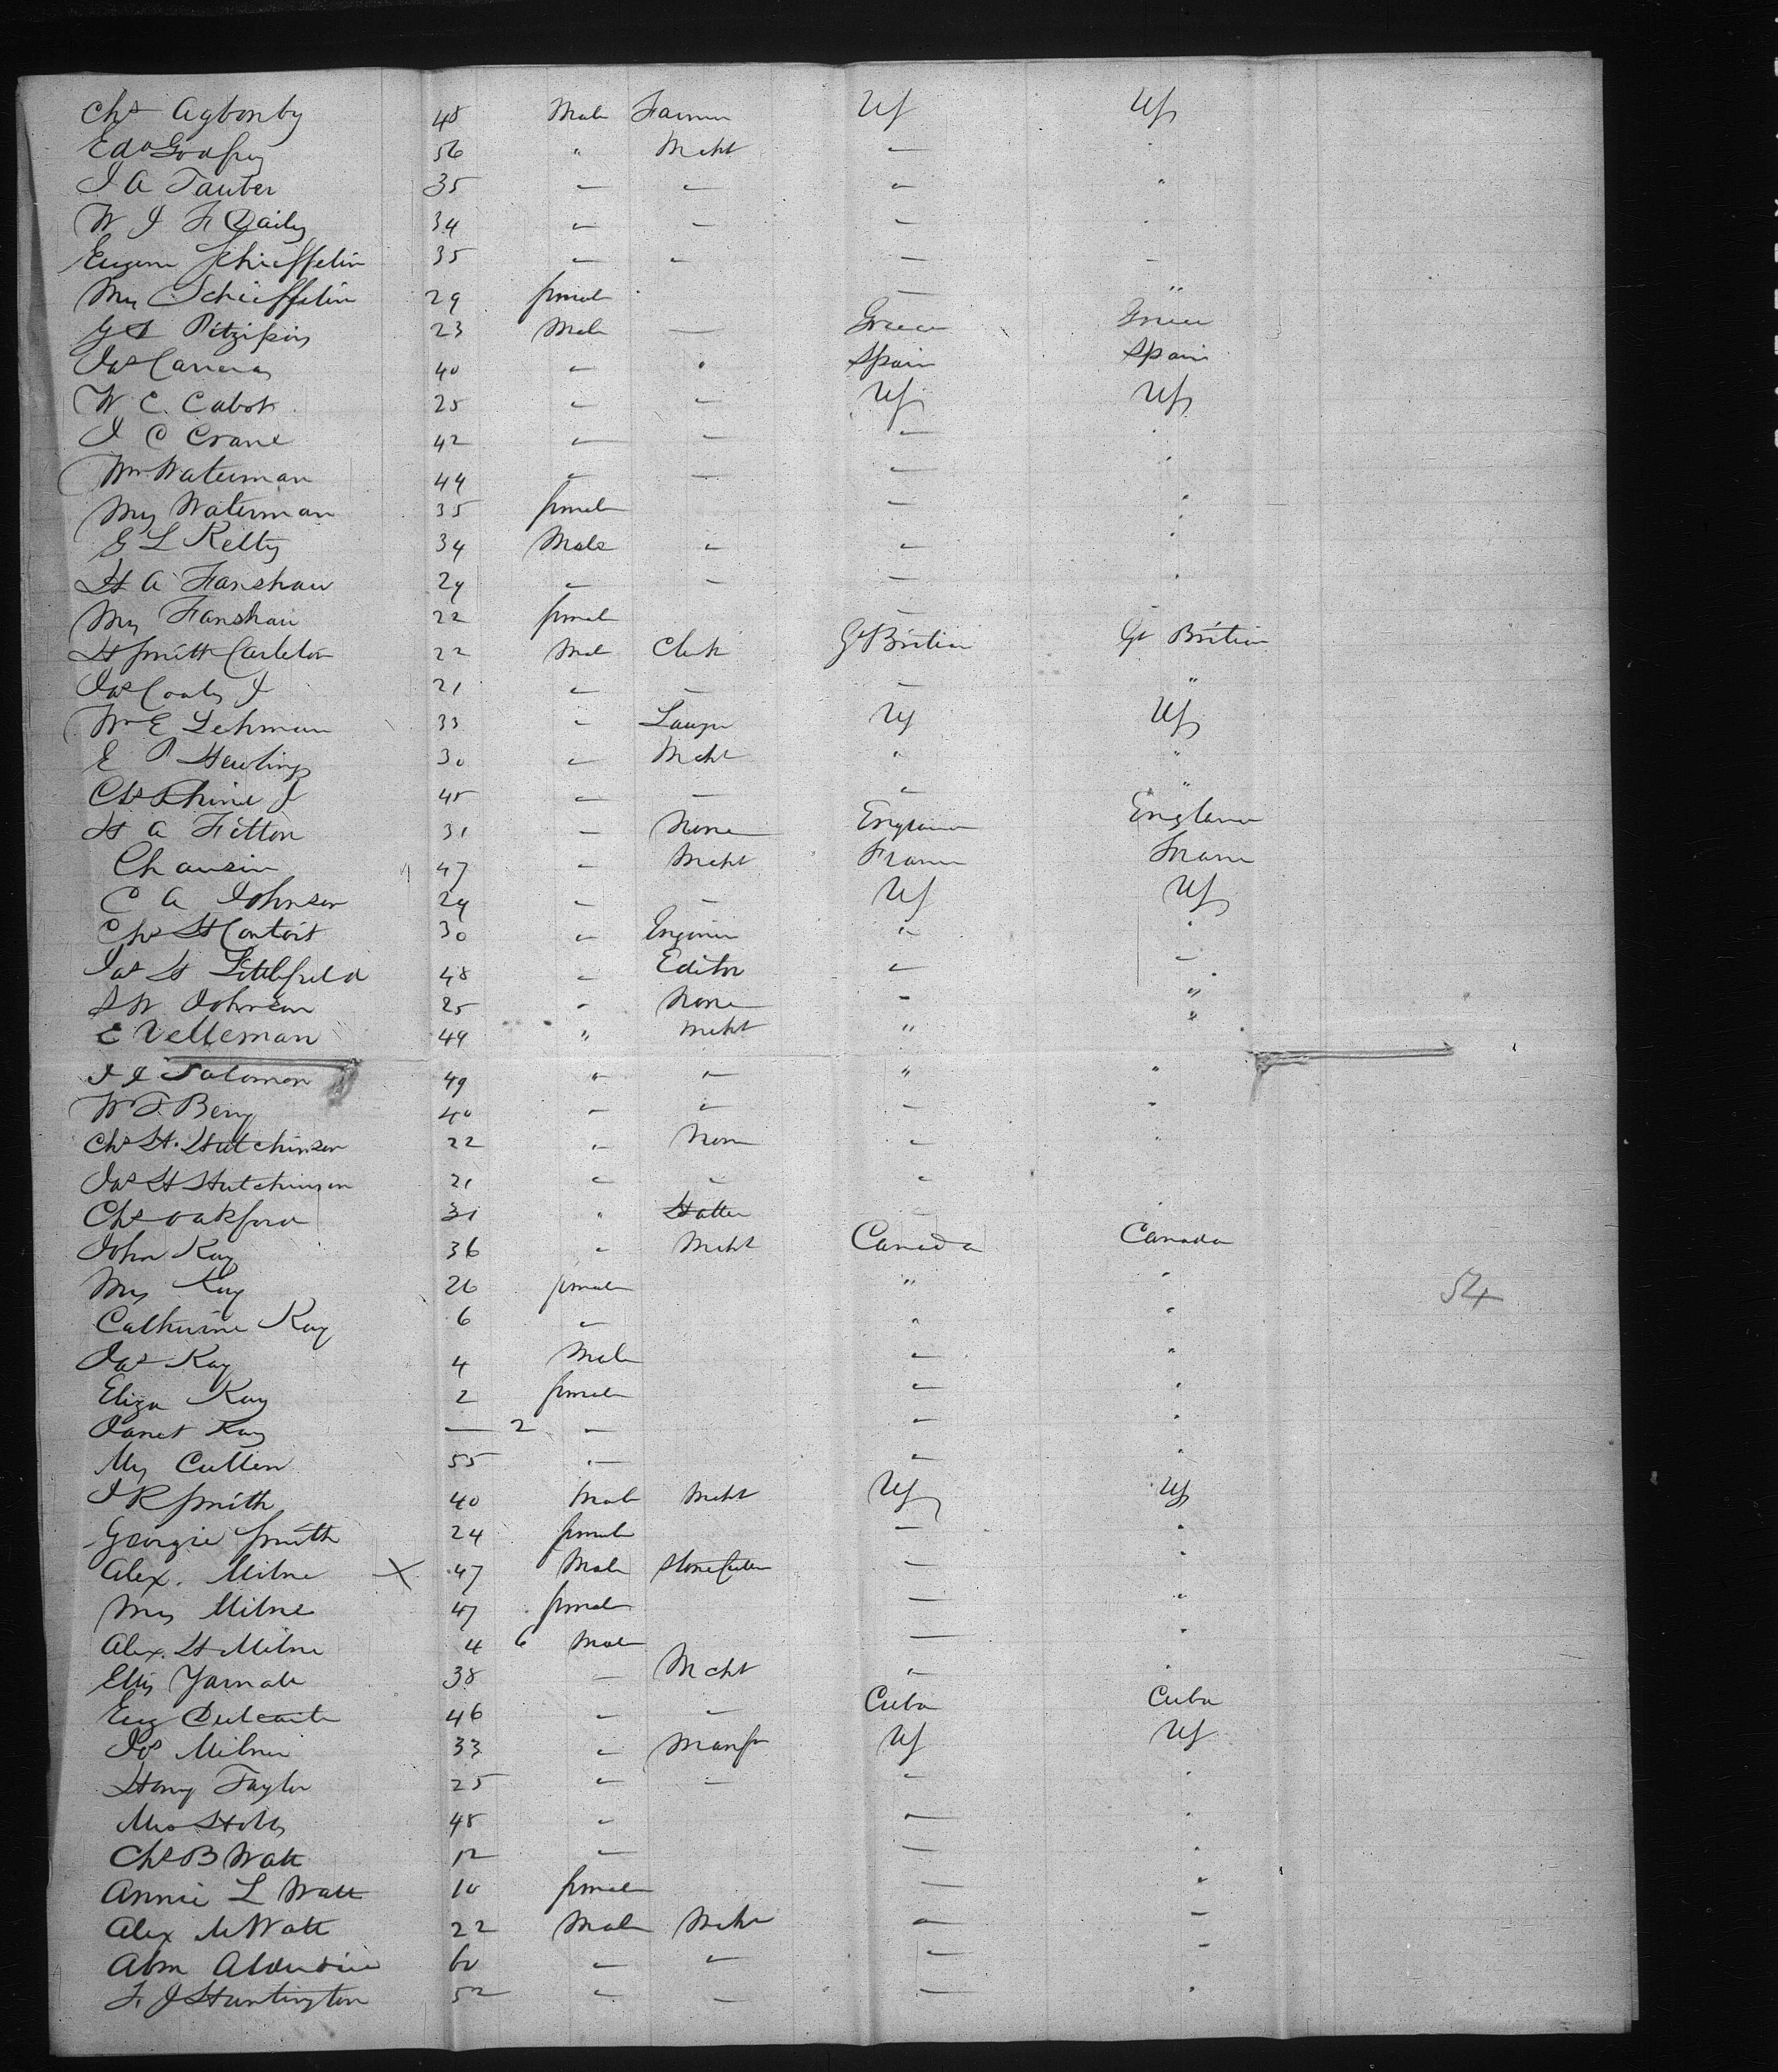 Chs Agbonby 48 Male Farmer US US
Edd Godfrey 56 " Mcht — "
J A Tauber 35 — — — "
W J F Daily 34 — — — "
Eugene Schieffelin 35 — — — —
Mrs Schieffelin 29 female — "
G D Pitzipios 23 Male — Greece Greece
Jas Carreras 40 — " Spain Spain
W. C. Cabot 25 — — US US
J C Crane 42 — — — "
Wm Waterman 44 — — — "
Mrs Waterman 35 female — "
G L Kelty 34 Male — — "
H A Fanshaw 29 — — — "
Mrs Fanshaw 22 female — —
H Smith Carleton 22 Male Clerk Gt Britian Gt Britian
Jas Couly J 21 — — — "
Wm E Lehman 33 — Lawyer US US
E P Hewlings 30 — Mcht " "
Chs Rhine J 45 — — — "
H A Fitton 31 — None England England
Chausin 47 — Mcht France France
C A Johnson 29 — — US US
Chs H Contoit 30 — Engineer — "
Jas H Littlefield 48 — Editor — —
S W Johnson 25 — None — "
E Velleman 49 " Mcht " "
J J Solomon 49 " — " "
W T. Berry 40 — — — "
Chs H. Hutchinson 22 — None — "
Jas H Hutchinson 21 — — —
Chs Oakford 31 " Hatter — "
John Kay 36 — Mcht Canada Canada
Mrs Kay 26 female " "
Catherine Kay 6 — " "
Jas Kay 4 Male — "
54
Eliza Kay 2 female — "
Janet Kay — 2 — — "
Mrs Cullen 55 — — "
J R Smith 40 Male Mcht US US
Georgie Smith 24 female — "
Alex. Milne X 47 Male Stone Cutter — "
Mrs Milne 47 female — "
Alex. H Milne 4 6 Male — "
Ellis Yarnall 38 — Mcht — "
Eug Dulcaite 46 — — Cuba Cuba
Jos Milner 33 — Manfr US US
Henry Taylor 25 — — — "
Mrs Hobbs 48 — — "
Chs B Watt 12 — — "
Annie L Watt 10 female — "
Alex M Watt 22 Male Mcht — —
Abm 60 — — — —
F J Huntington 52 — — — "